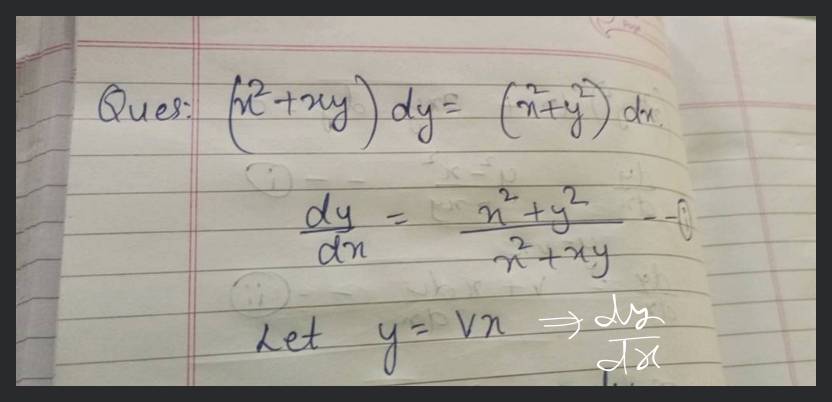 Ques: (x²+xy) dy = (x²+y²) dx.
dy/dx = x²+y² / x²+xy --①
Let y = vx ⇒ dy/dx